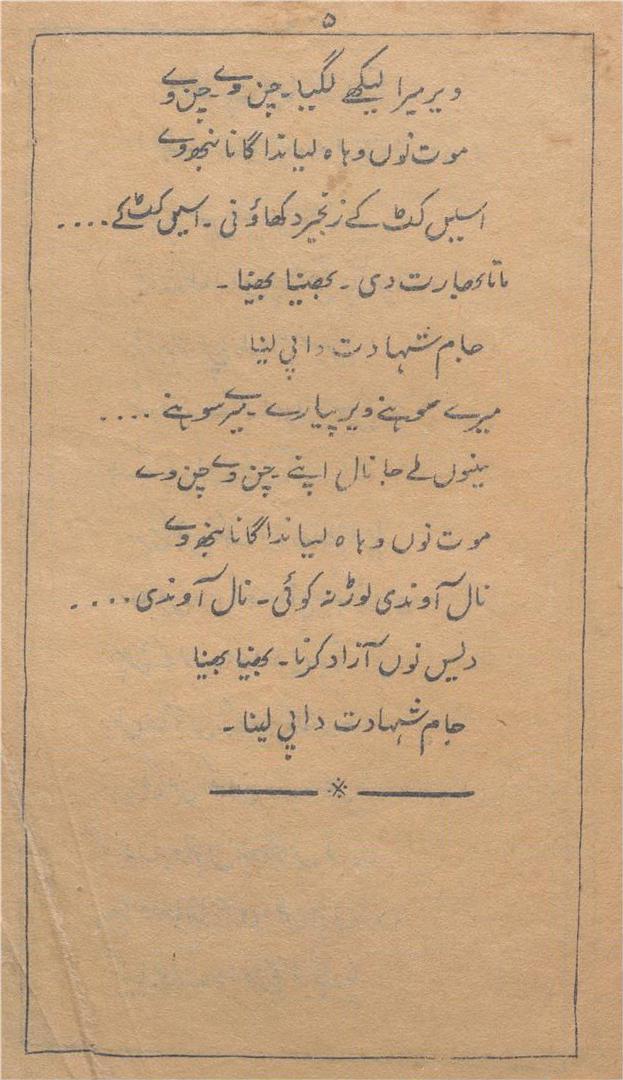 ۵
ویر میرا لیکھے لگیا۔ چن وے۔ چن وے
موت نوں ویاہ لیاندا گانا بنھ وے
اسیں کٹ کے زنجیر دکھاؤنی۔ اسیں کٹ کے....
ماتا بھارت دی۔ بھینیا بھینیا۔
جام شہادت دا پی لینا
میرے سوہنے ویر پیارے۔ میرے سوہنے....
مینوں لے جا نال اپنے۔ چن وے چن وے
موت نوں ویاہ لیاندا گانا بنھ وے
نال آوندی لوڑ نہ کوئی۔ نال آوندی....
دیس نوں آزاد کرنا۔ بھینیا بھینیا
جام شہادت دا پی لینا۔